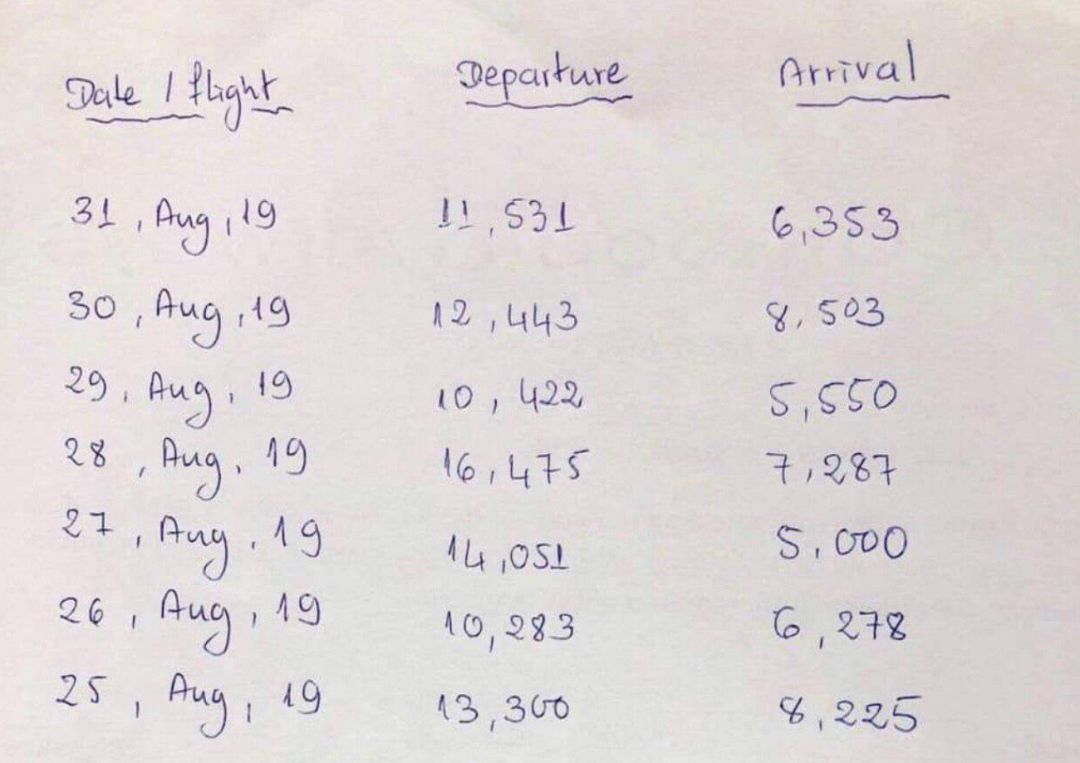 Date / flight Departure Arrival
31 , Aug , 19 11,531 6,353
30 , Aug , 19 12,443 8,503
29 , Aug , 19 10,422 5,550
28 , Aug , 19 16,475 7,287
27 , Aug , 19 14,051 5,000
26 , Aug , 19 10,283 6,278
25 , Aug , 19 13,300 8,225